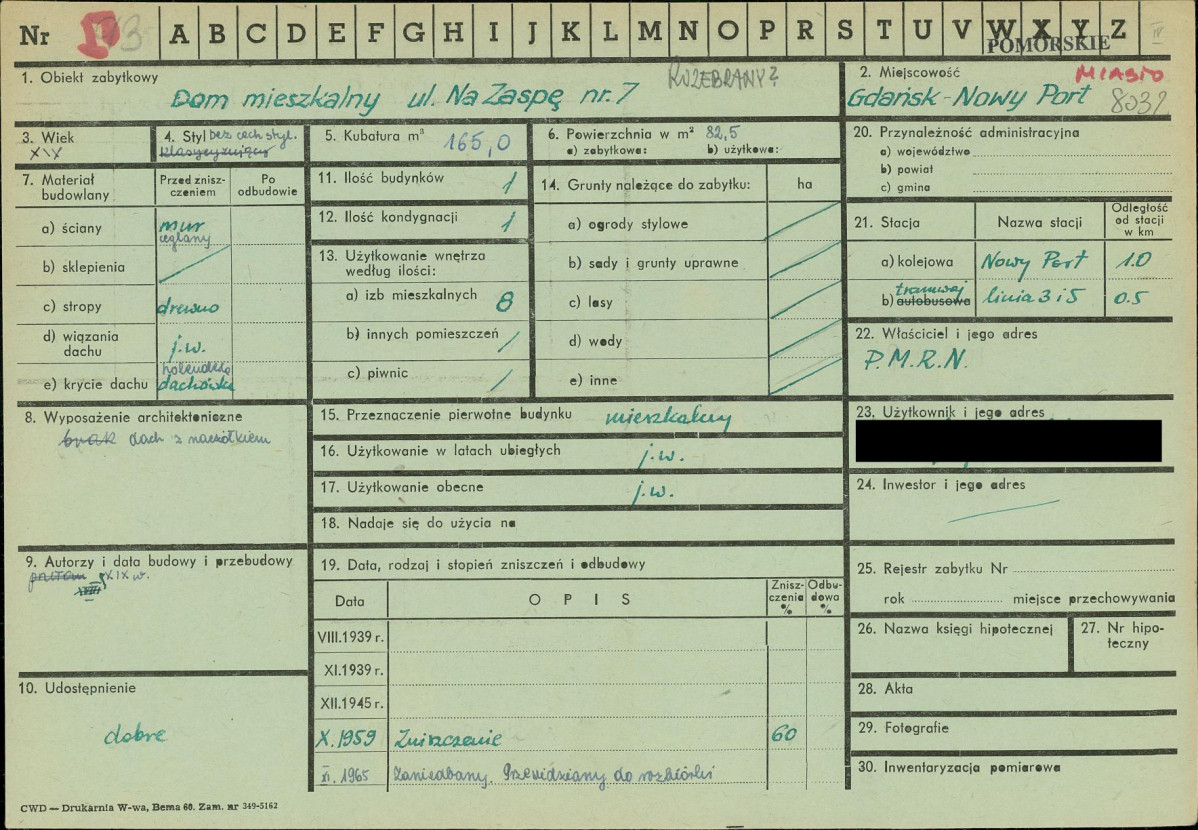 Nr A B C D E F G H I J K L M N O P R S T U V W X Y Z
POMORSKIE
1. Obiekt zabytkowy
ROZEBRANY?
Dom mieszkalny ul. Na Zaspę nr. 7
2. Miejscowość
MIASTO
Gdańsk-Nowy Port 8032
3. Wiek
XIX
4. Styl bez cech styl.
klasycyzujący
5. Kubatura m³ 165,0
6. Powierzchnia w m² 82,5
a) zabytkowa: b) użytkowa:
7. Materiał budowlany
Przed zniszczeniem
Po odbudowie
a) ściany mur ceglany
b) sklepienia
c) stropy drewno
d) wiązania dachu j.w.
e) krycie dachu holenderka dachówka
8. Wyposażenie architektoniczne
brak dach z naczółkiem
9. Autorzy i data budowy i przebudowy
XVIII XIX w.
10. Udostępnienie
dobre
11. Ilość budynków 1
12. Ilość kondygnacji 1
13. Użytkowanie wnętrza według ilości:
a) izb mieszkalnych 8
b) innych pomieszczeń /
c) piwnic /
14. Grunty należące do zabytku: ha
a) ogrody stylowe
b) sady i grunty uprawne
c) lasy
d) wody
e) inne
15. Przeznaczenie pierwotne budynku mieszkalny
16. Użytkowanie w latach ubiegłych j.w.
17. Użytkowanie obecne j.w.
18. Nadaje się do użycia na
19. Data, rodzaj i stopień zniszczeń i odbudowy
Data OPIS Zniszczenia % Odbudowa %
VIII.1939 r.
XI.1939 r.
XII.1945 r.
X.1959 Zniszczenie 60
XI.1965 Zaniedbany. Przewidziany do rozbiórki
20. Przynależność administracyjna
a) województwo
b) powiat
c) gmina
21. Stacja Nazwa stacji Odległość od stacji w km
a) kolejowa Nowy Port 1.0
tramwaj
b) autobusowa linia 3 i 5 0.5
22. Właściciel i jego adres
P.M.R.N.
23. Użytkownik i jego adres
24. Inwestor i jego adres
25. Rejestr zabytku Nr
rok miejsce przechowywania
26. Nazwa księgi hipotecznej
27. Nr hipoteczny
28. Akta
29. Fotografie
30. Inwentaryzacja pomiarowa
CWD — Drukarnia W-wa, Bema 60. Zam. nr 349-5162